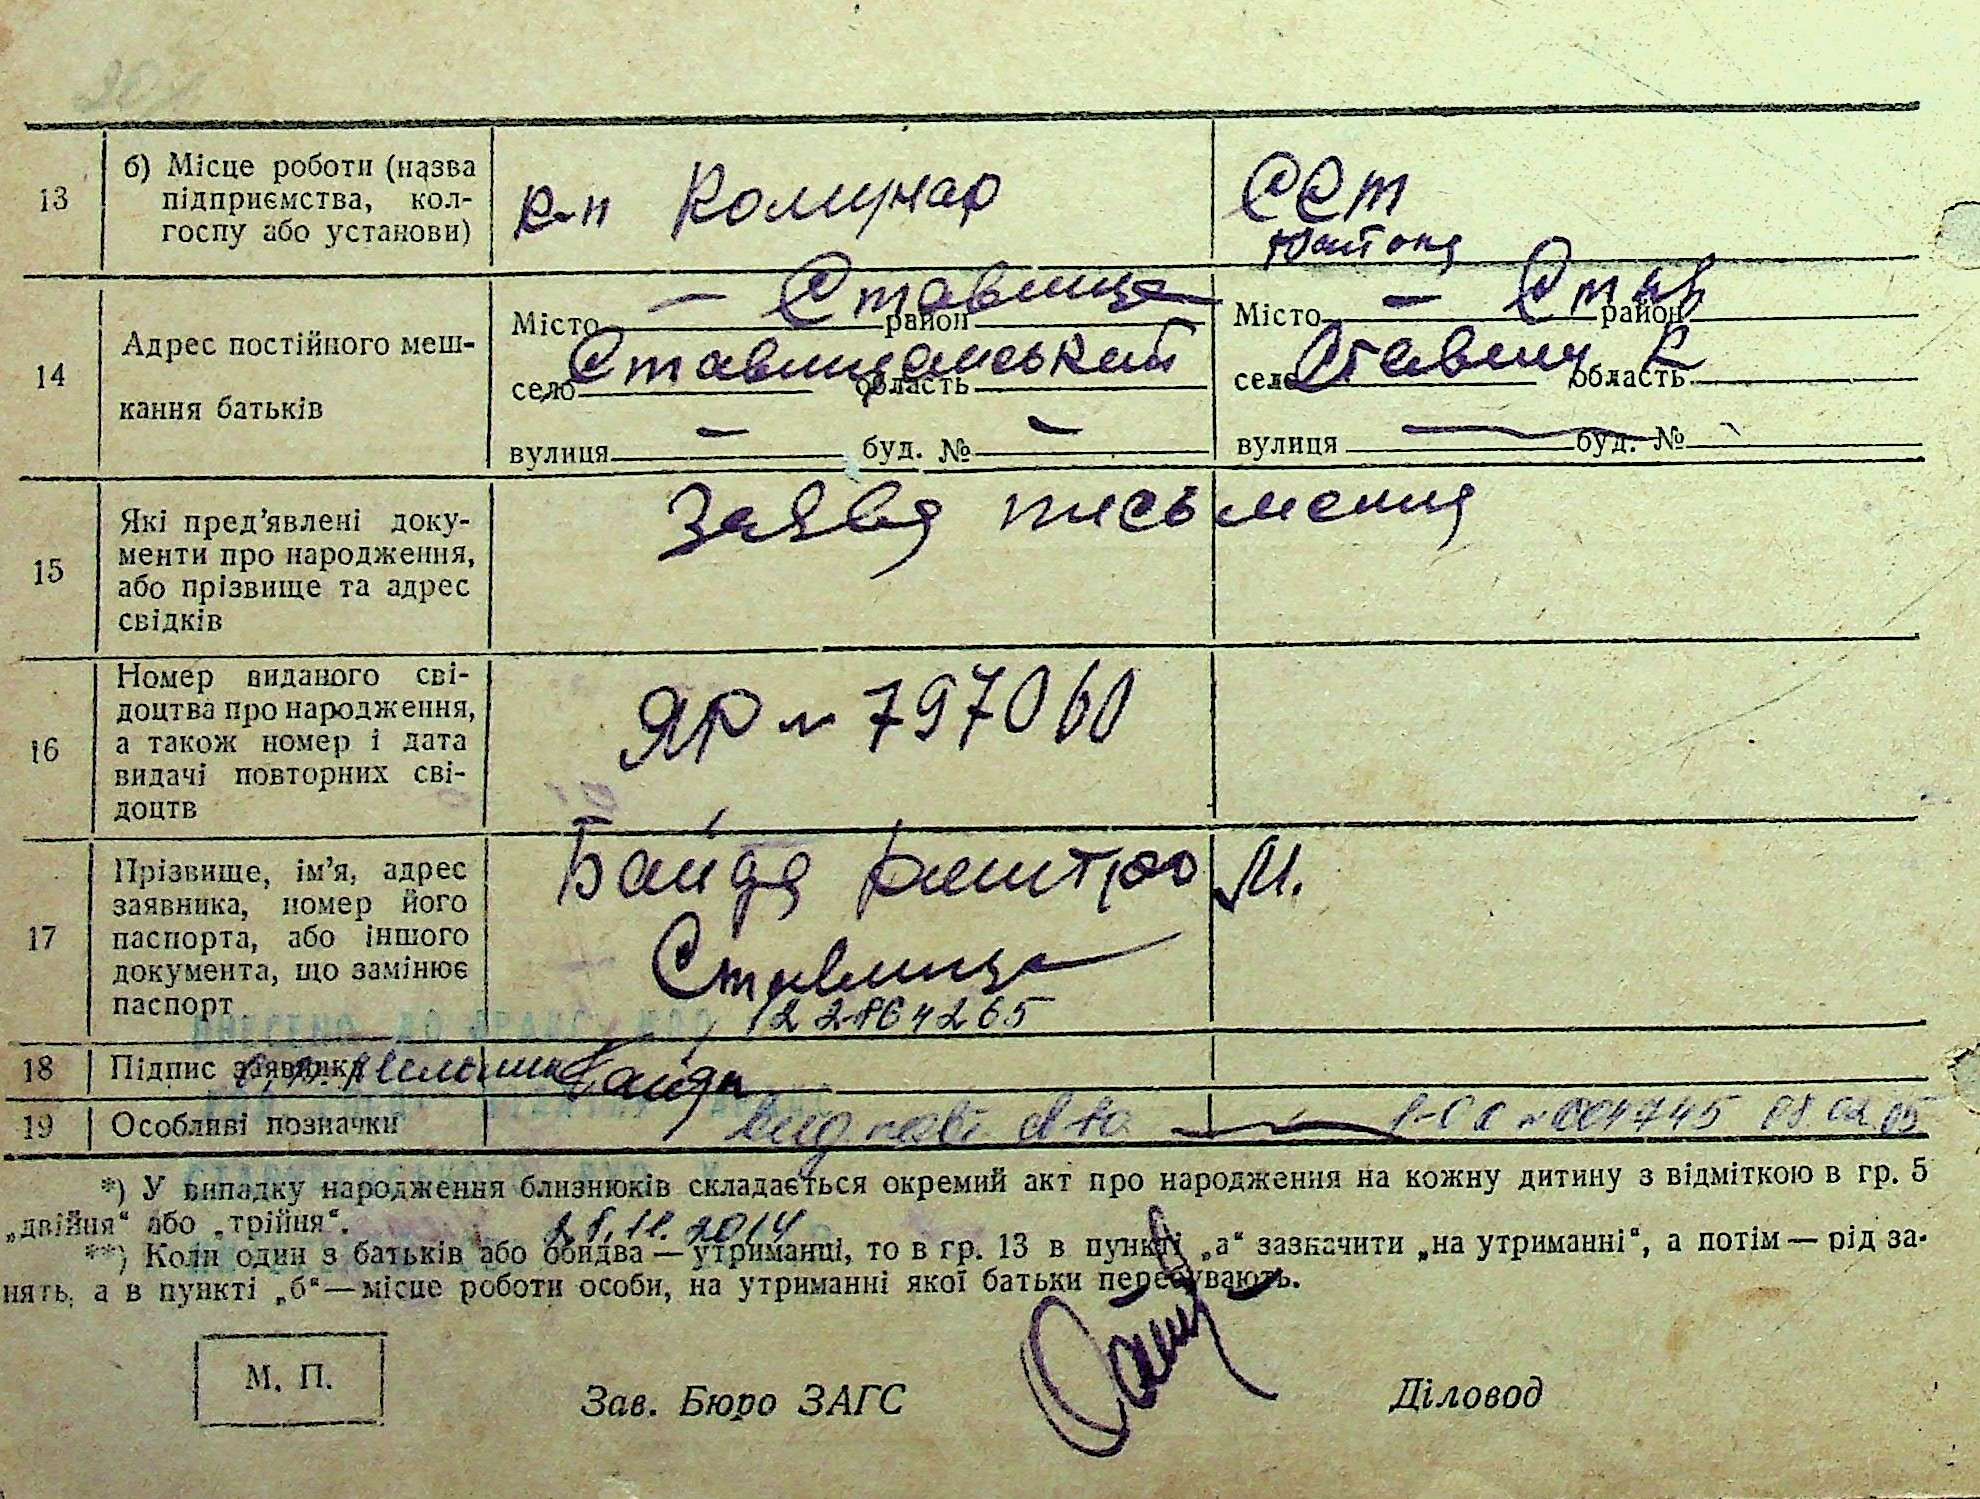 13
б) Місце роботи (назва
підприємства, кол-
госпу або установи)
к-п Комунар
ССТ
14
Адрес постійного меш-
кання батьків
Місто — Ставище район
село Ставищанський область
вулиця — буд. № —
Місто — Став район
село Ставищ область
вулиця — буд. №
15
Які пред'явлені доку-
менти про народження,
або прізвище та адрес
свідків
Заява письменна
16
Номер виданого сві-
доцтва про народження,
а також номер і дата
видачі повторних сві-
доцтв
ЯР № 797060
17
Прізвище, ім'я, адрес
заявника, номер його
паспорта, або іншого
документа, що замінює
паспорт
Байда М.
Ставище
18
Підпис заявника
Байда
19
Особливі позначки
*) У випадку народження близнюків складається окремий акт про народження на кожну дитину з відміткою в гр. 5
„двійня“ або „трійня“.
11.2014
**) Коли один з батьків або обидва — утриманці, то в гр. 13 в пункті „а“ зазначити „на утриманні“, а потім — рід за-
нять, а в пункті „б“ — місце роботи особи, на утриманні якої батьки перебувають.
М. П.
Зав. Бюро ЗАГС
Діловод